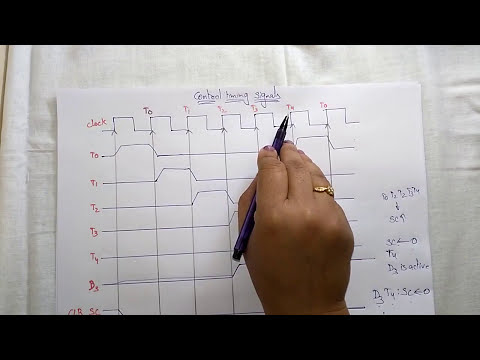 Control timing signals
T0 T1 T2 T3 T4 T0
clock
T0
T1
T2
T3
T4
D3
CLR SC
T0 T1 T2 T3 T4
SC
SC ← 0
T4
D3 is active
D3 T4 : SC ← 0